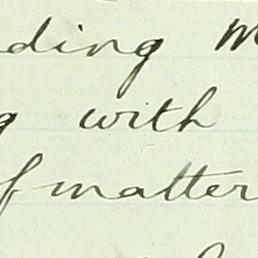 ding m
g with
of matter